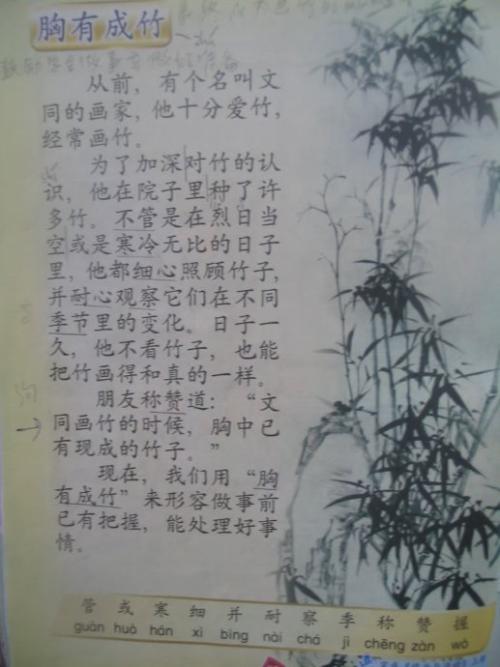 胸有成竹
从前，有个名叫文
同的画家，他十分爱竹，
经常画竹。
为了加深对竹的认
识，他在院子里种了许
多竹。不管是在烈日当
空或是寒冷无比的日子
里，他都细心照顾竹子，
并耐心观察它们在不同
季节里的变化。日子一
久，他不看竹子，也能
把竹画得和真的一样。
朋友称赞道：“文
同画竹的时候，胸中已
有现成的竹子。”
现在，我们用“胸
有成竹”来形容做事前
已有把握，能处理好事
情。
管 或 寒 细 并 耐 察 季 称 赞 握
guǎn huò hán xì bìng nài chá jì chēng zàn wò